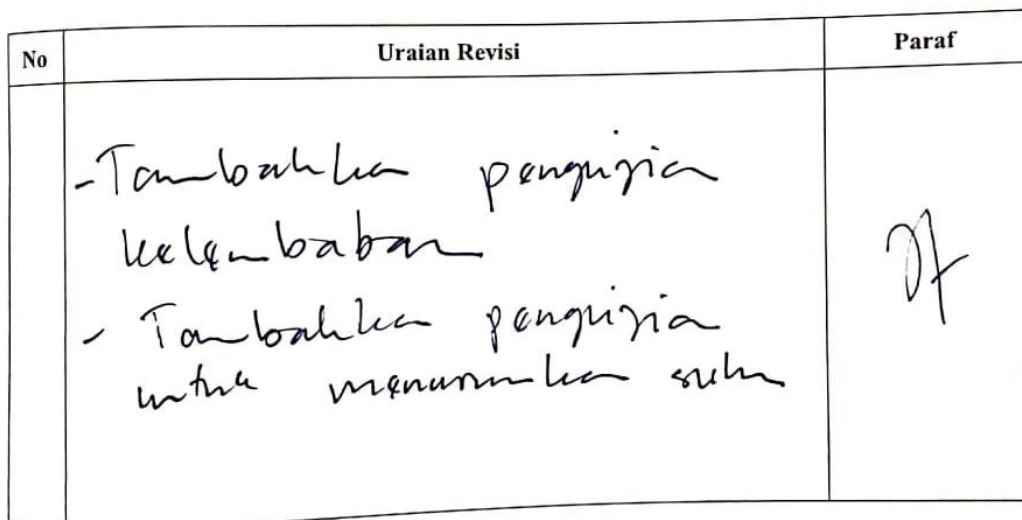 No Uraian Revisi Paraf
- Tambahkan pengujian
kelembaban
- Tambahkan pengujian
untuk menurunkan suhu